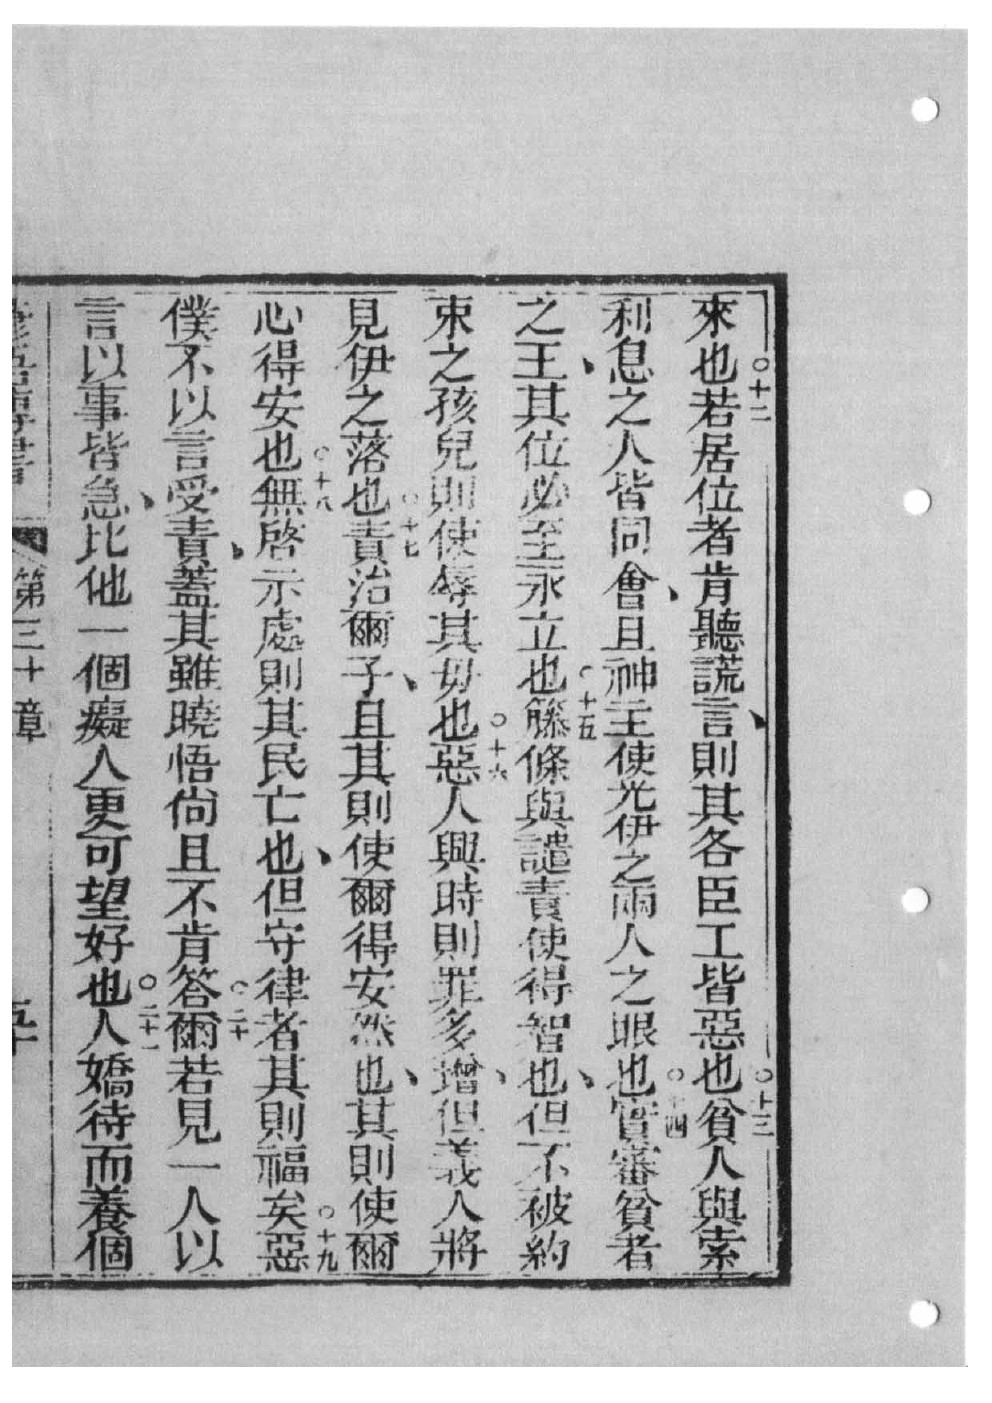 來也○十二若居位者肯聽謊言、則其各臣工皆惡也○十三貧人與索
利息之人皆同會、且神主使光伊之兩人之眼也○十四實審貧者
之王、其位必至永立也○十五籐條與譴責使得智也、但不被約
束之孩兒則使辱其母也○十六惡人興時則罪多增、但義人將
見伊之落也○十七責治爾子、且其則使爾得安然也、其則使爾
心得安也○十八無啓示處則其民亡也、但守律者其則福矣○十九惡
僕不以言受責、蓋其雖曉悟尚且不肯答○二十爾若見一人以
言以事皆急、比他一個癡人更可望好也○二十一人嬌待而養個
第三十章
五十